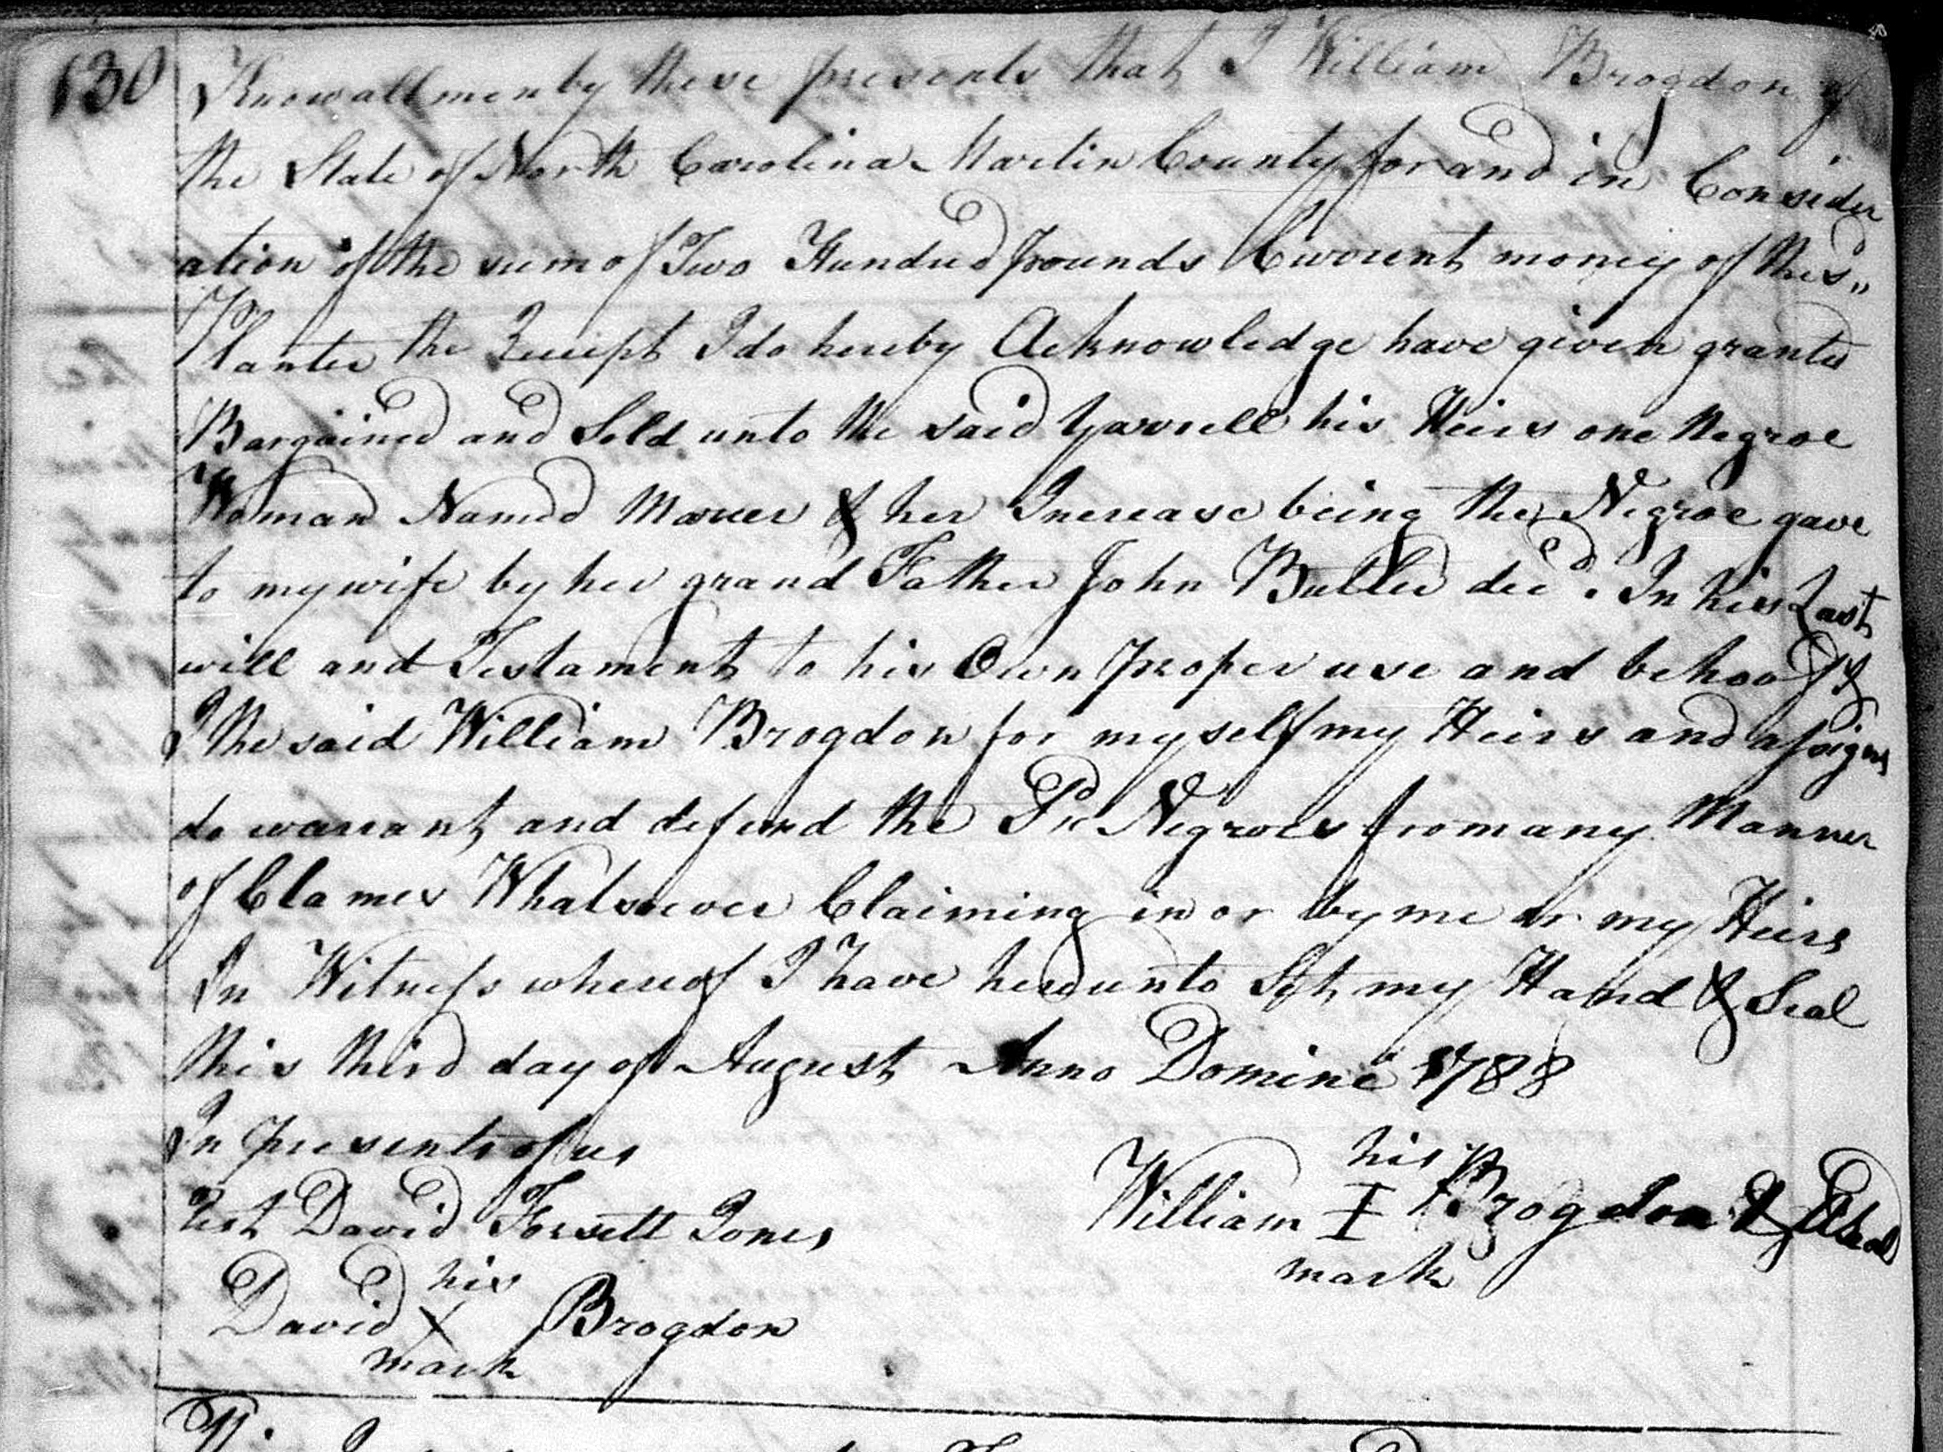 130
Know all men by these presents that I William Brogdon of
the State of North Carolina Martin County for and in Consider
ation of the sum of Two Hundred pounds Currount money of this "
Planter the Receipt I do hereby Acknowledge have given granted
Bargained and Sold unto the said Yarrell his Heirs one Negroe
Woman Named & her Increase being the Negroe gave
to my wife by her grand Father John Butler decd. In his Last
will and Testament to his Own proper use and behoof &
I the said William Brogdon for my self my Heirs and assigns
do warrant and defend the Negroes from any Manner
of Clames Whatsoever Claiming in or by me or my Heirs
In Witness whereof I have hereunto Set my Hand & Seal
this third day of August Anno Domine 1788
In presents of us
Test David Jones
his
William I Brogdon & Seal
mark
his
David X Brogdon
mark